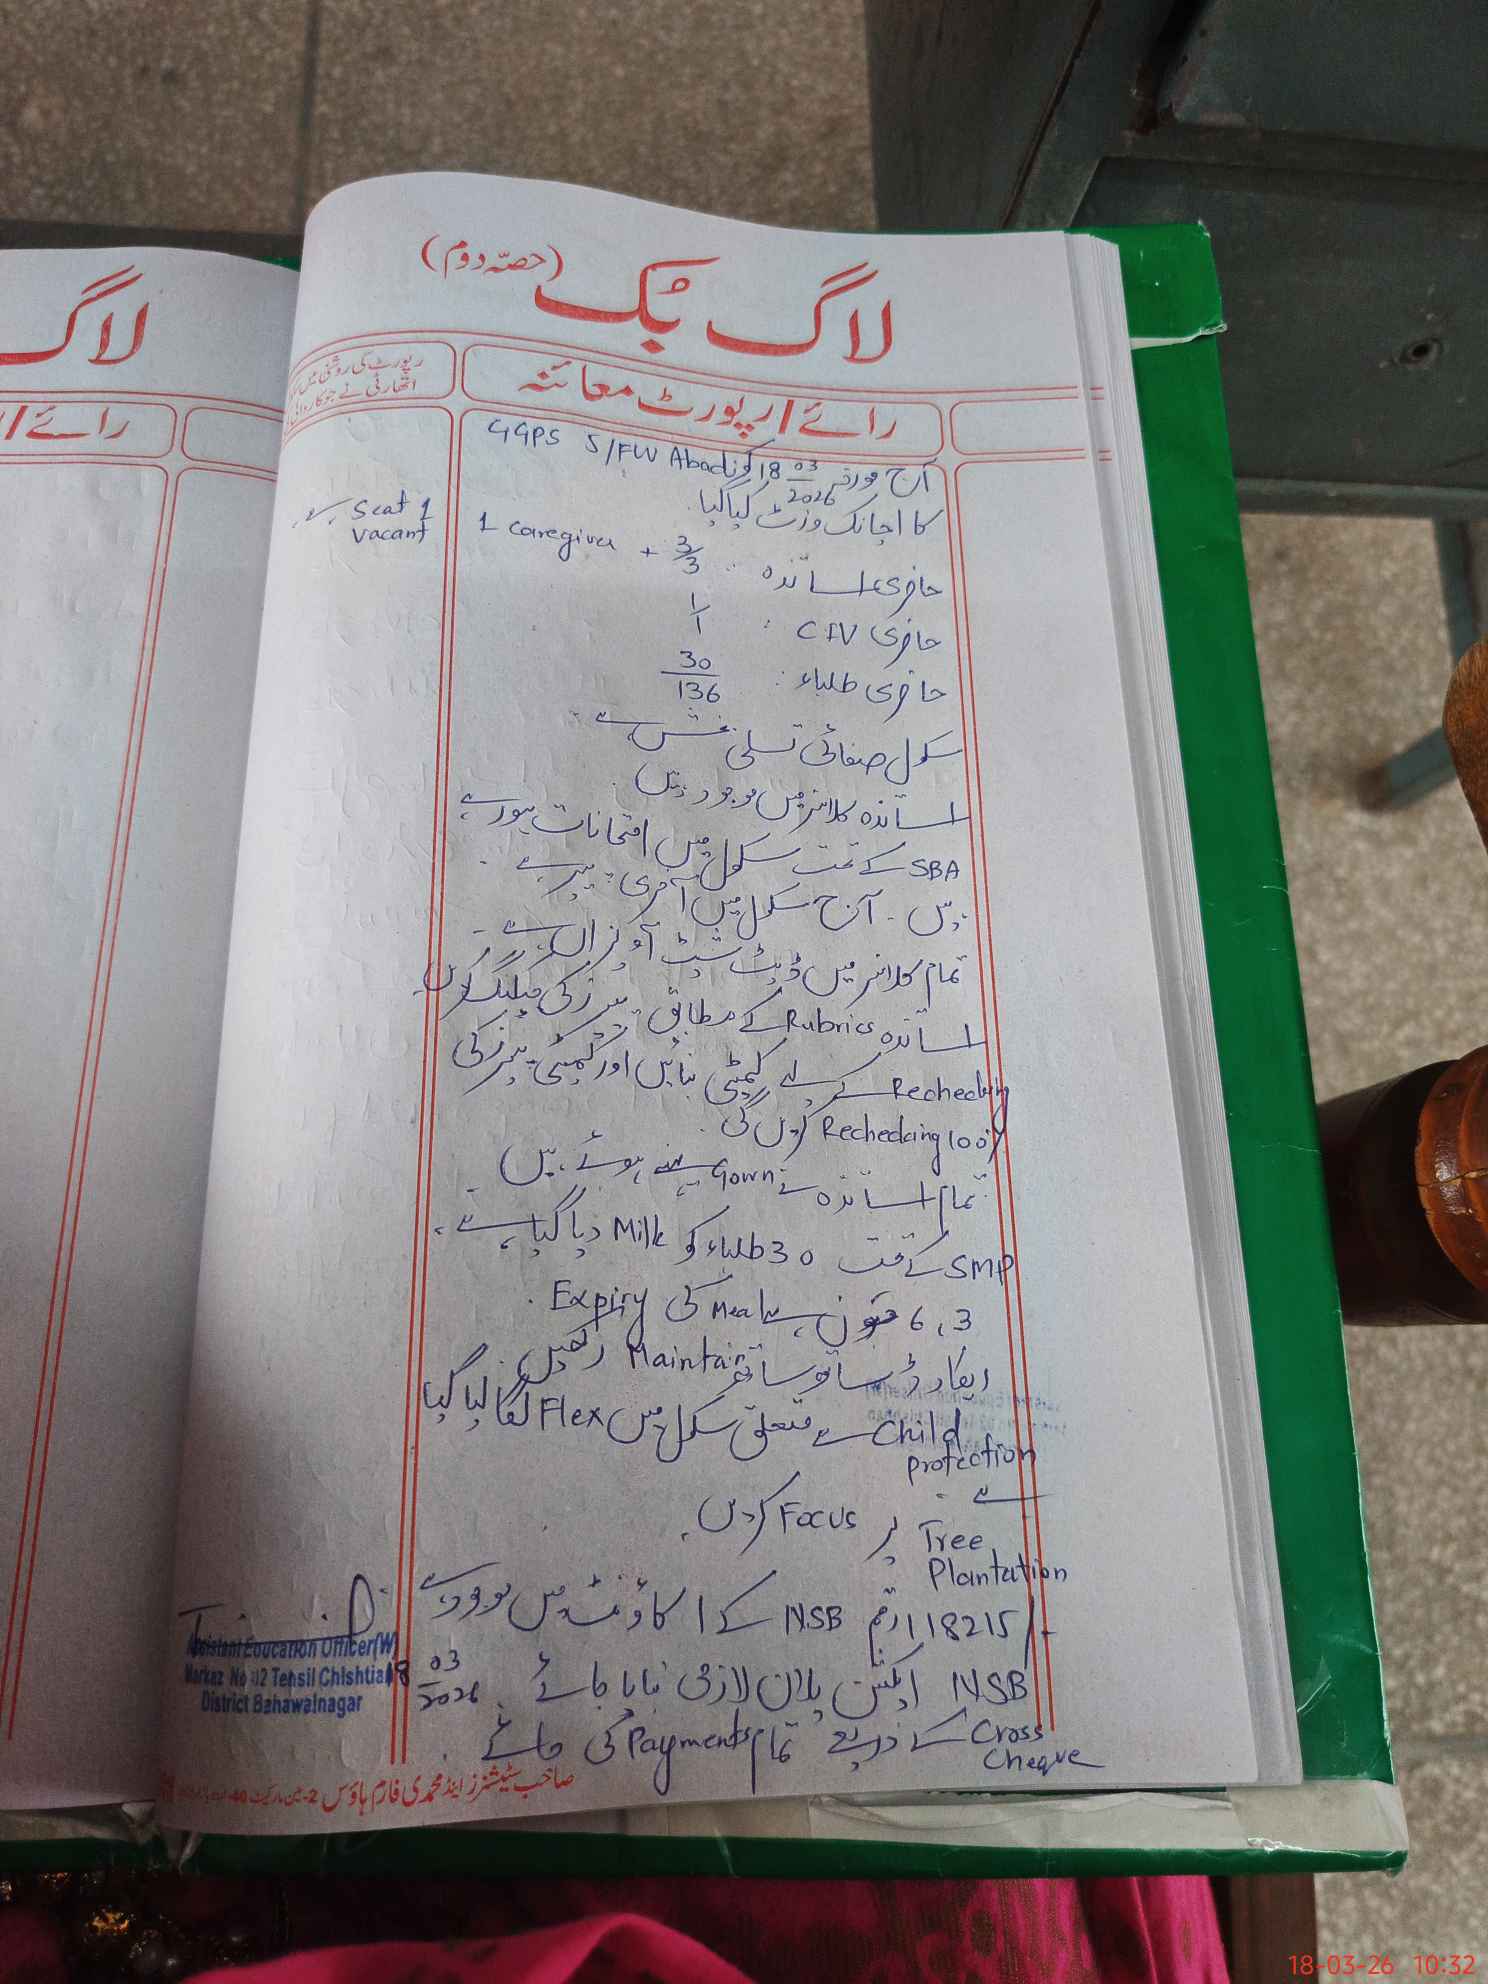 لاگ بُک (حصّہ دوم)
رائے / رپورٹ معائنہ
رپورٹ کی روشنی میں
اتھارٹی نے جو کاروائی
آج مورخہ 18 03/2026 کو GGPS 5/FW Abadi
کا اچانک وزٹ کیا گیا۔
حاضری اساتذہ : 3/3 + 1 caregiver
1 Seat vacant ہے۔
حاضری CIV : 1/1
حاضری طلباء : 30/136
سکول صفائی تسلی بخش ہے۔
اساتذہ کلاسز میں موجود ہیں۔
SBA کے تحت سکول میں امتحانات ہو رہے
ہیں۔ آج سکول میں آخری پیپر ہے۔
تمام کلاسز میں ڈیٹ شیٹ آویزاں ہے۔
اساتذہ Rubrics کے مطابق پیپرز کی چیکنگ کریں۔
Rechecking کے لیے کمیٹی بنائیں اور کمیٹی پیپرز کی
100% Rechecking کریں گی۔
تمام اساتذہ نے Gown پہنے ہوئے ہیں۔
SMP کے تحت 30 طلباء کو Milk دیا گیا ہے۔
3، 6 ہے Meal کی Expiry۔
ریکارڈ ساتھ ساتھ Maintain رکھیں۔
Child protection سے متعلق سکول میں Flex لگا لیا گیا
ہے۔
Tree Plantation پر Focus کریں۔
118215/- رقم NSB کے اکاؤنٹ میں موجود ہے
NSB ایکشن پلان لازمی بنایا جائے۔
Cross Cheque کے ذریعے تمام Payments کی جائے۔
Assistant Education Officer(W)
Markaz No 02 Tehsil Chishtian
District Bahawalnagar
18 03/2026
صاحب سٹیشنرز اینڈ محمدی فارم ہاؤس 2-
لاگ
رائے /
18-03-26 10:32